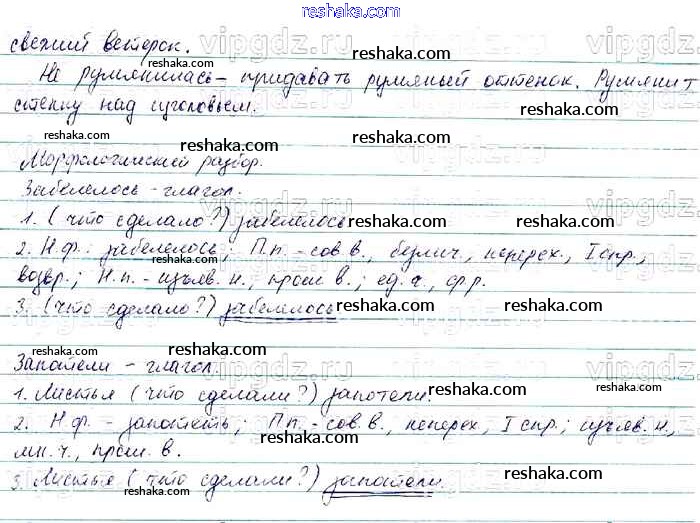 reshaka.com
свежий ветерок.
Не румянилась – придавать румяный оттенок. Румянит
стенку над изголовьем.
Морфологический разбор.
Забелелось – глагол.
1. (что сделало?) забелелось
2. Н.ф.: забелелось; П.п. – сов.в., безлич., неперех., I спр.,
возвр.; Н.п. – изъяв.н., прош.в.; ед.ч., ср.р.
3. (что сделало?) забелелось
Запотели – глагол.
1. Листья (что сделали?) запотели.
2. Н.ф. – запотеть; П.п. – сов.в., неперех., I спр.; изъяв.н.,
мн.ч., прош.в.
3. Листья (что сделали?) запотели.